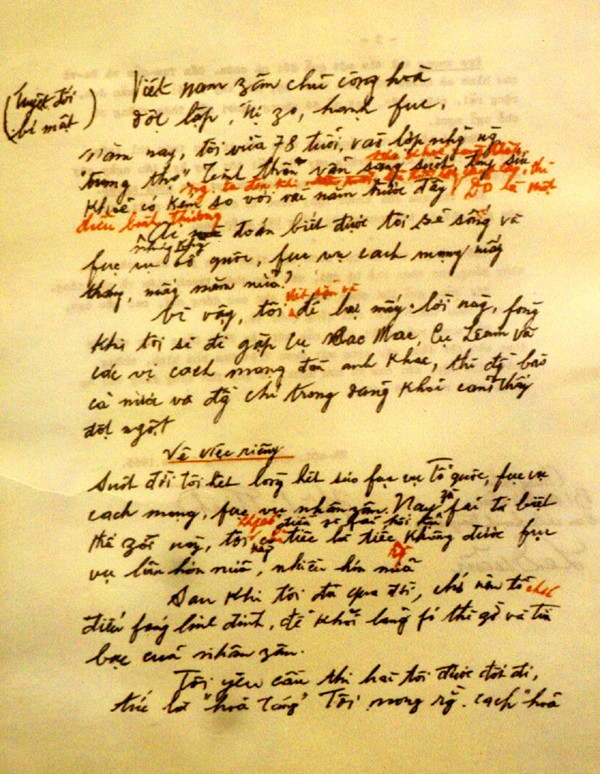 (Tuyệt đối
bí mật)
Việt nam zân chủ cộng hoà
độc lập, tự zo, hạnh fúc.
Năm nay, tôi vừa 78 tuổi, vào lớp những ng
"trung thọ" Tinh thần vẫn sáng suốt, tuy sức
khoẻ có kém so với vài năm trước đây.
ng. ta đến khi
Đó là một
điều bình thường
Ai mà đoán biết được tôi sẽ sống và
fục vụ tổ quốc, fục vụ cách mạng mấy
tháng, mấy năm nữa?
Vì vậy, tôi viết sẵn và để lại mấy lời này, fòng
khi tôi sẽ đi gặp Cụ Các Mác, Cụ Lênin và
các vị cách mạng đàn anh khác, thì đg bào
cả nước và đg chí trong đảng khỏi cảm thấy
đột ngột
Về việc riêng
Suốt đời tôi hết lòng hết sức fục vụ tổ quốc, fục vụ
cách mạng, fục vụ nhân zân. Nay zù fải từ biệt
không có điều gì fải hối hận
thế zới này, tôi chỉ tiếc là tiếc không được fục
vụ lâu hơn nữa, nhiều hơn nữa
Sau khi tôi đã qua đời, chớ nên tổ chức
điếu fúng linh đình, để khỏi lãng fí thì zờ và tiền
bạc của nhân zân.
Tôi yêu cầu thi hài tôi được đốt đi,
tức là "hoả táng" Tôi mong rằ. cách "hoả